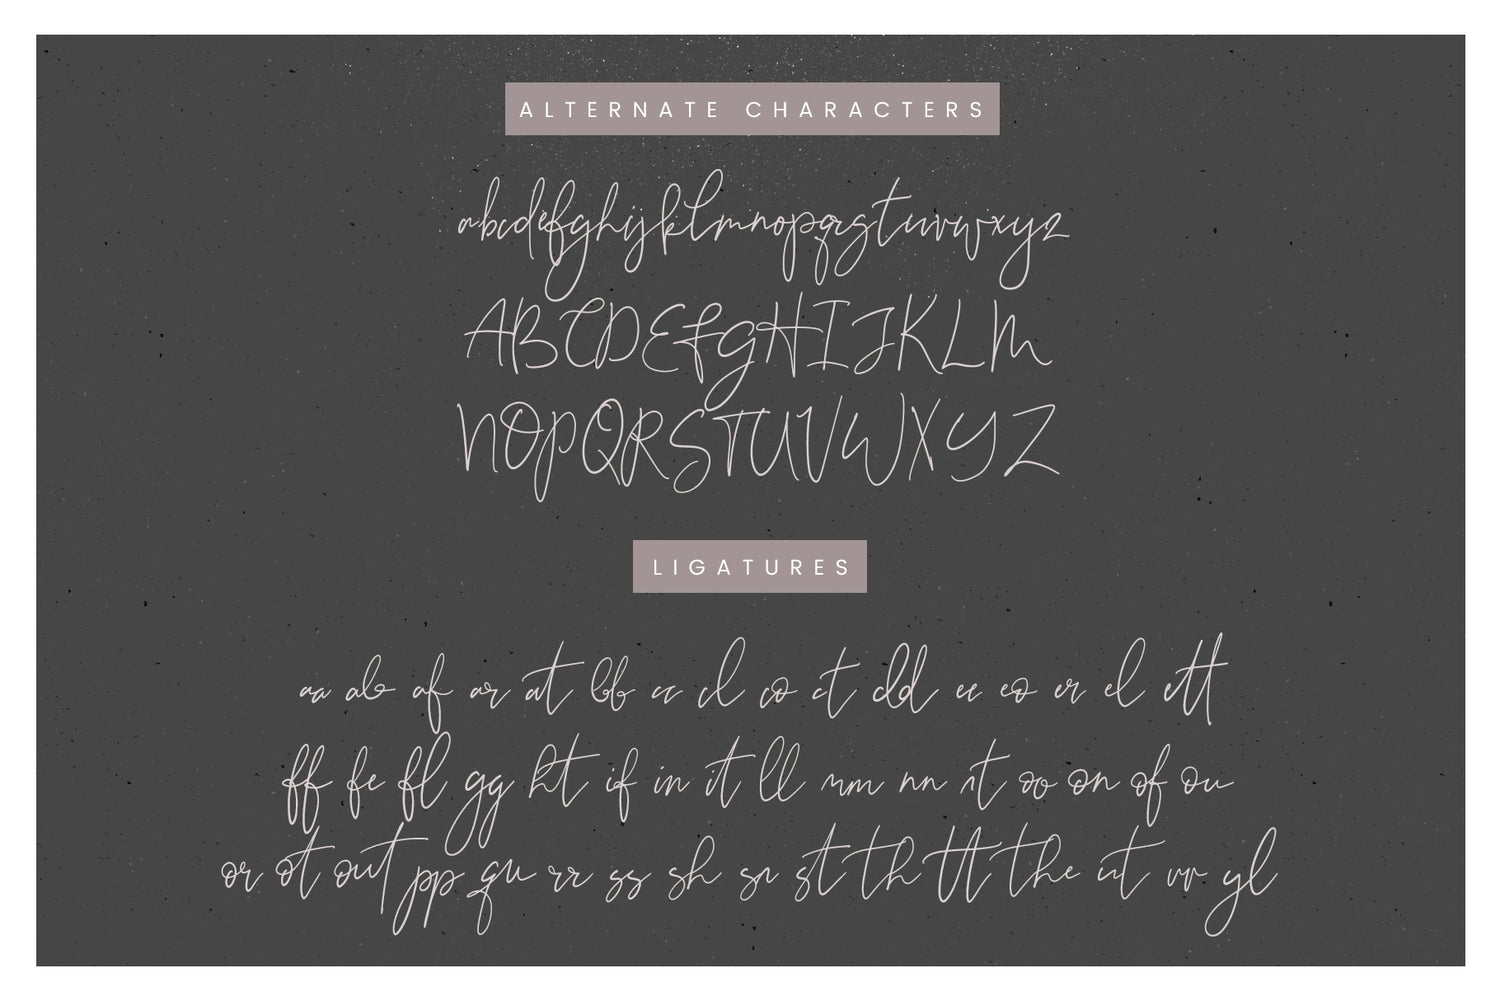 ALTERNATE CHARACTERS
abcdefghijklmnopqrstuvwxyz
ABCDEFGHIJKLM
NOPQRSTUVWXYZ
LIGATURES
aa ab af ar at bb cc cl co ct dd ee eo er el ett
ff fe fl gg ht if in it ll mm nn nt oo on of ou
or ot out pp qu rr ss sh sn st th tt the ut vv yl